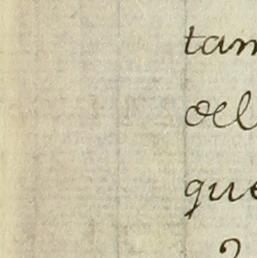 tam
oel
que